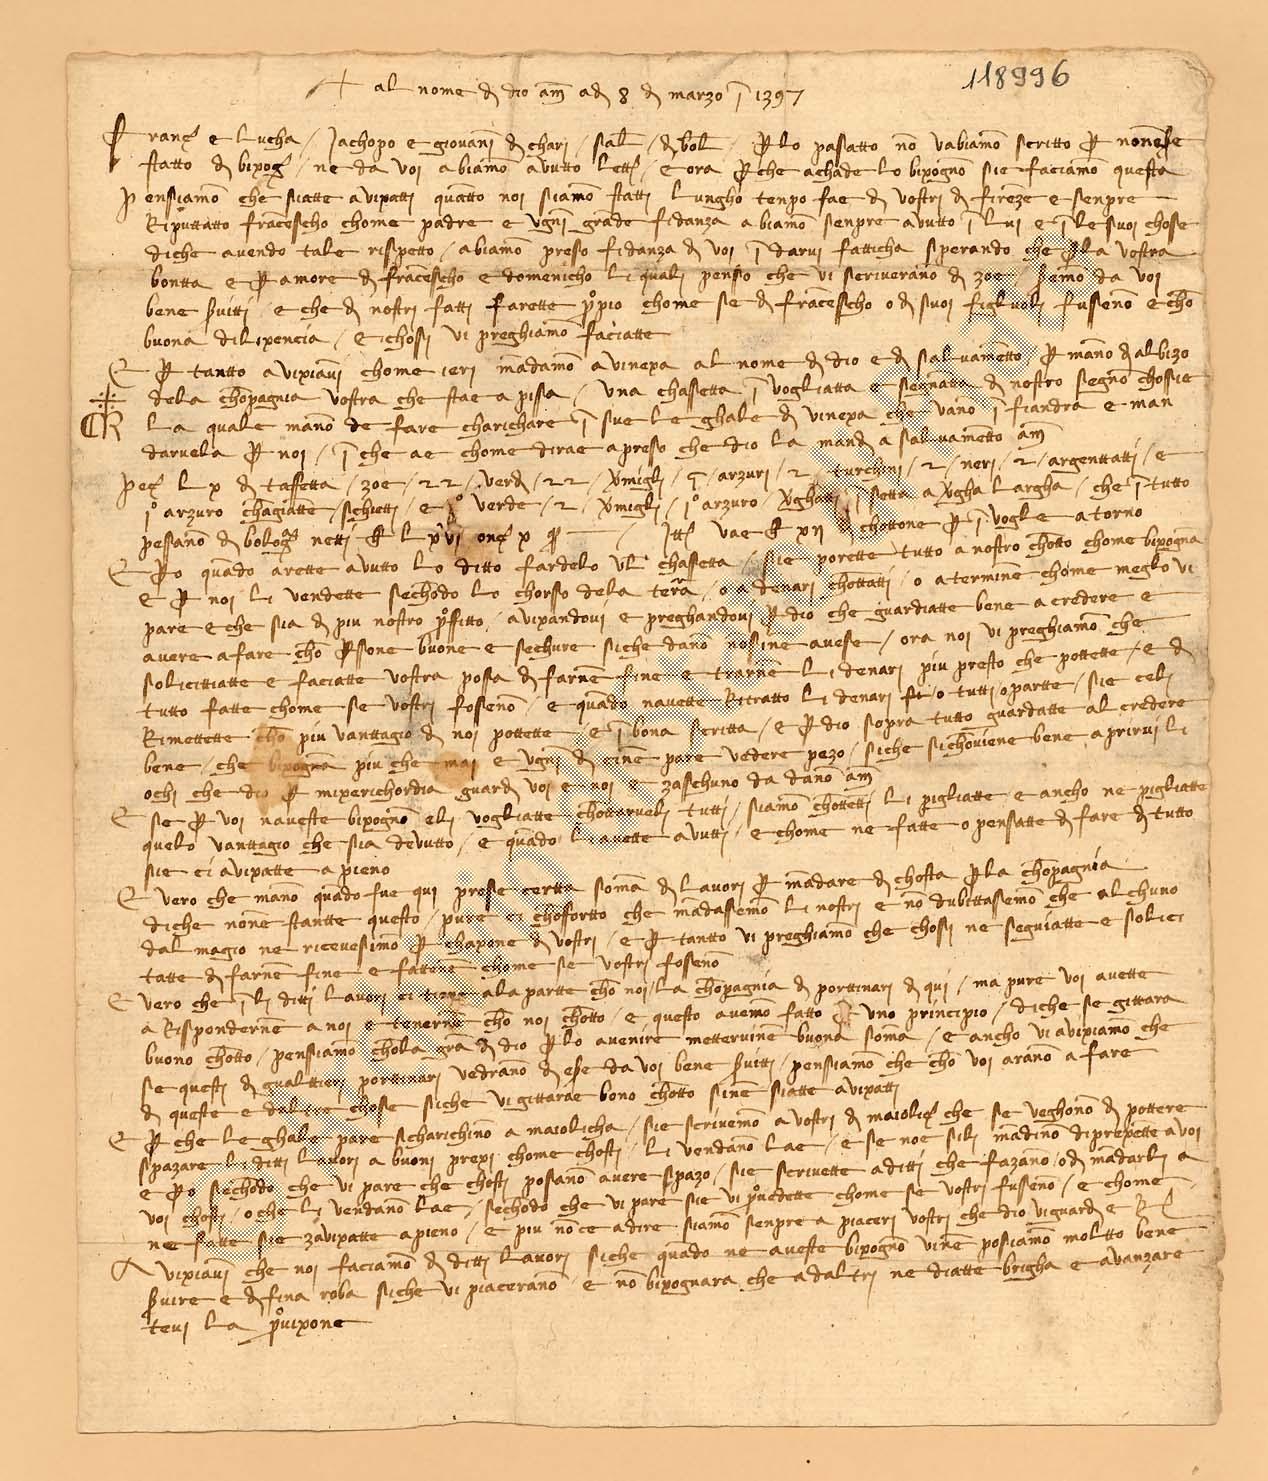 118996
+ al nome di dio am ad 8 di marzo 1397
e Lucha / Jachopo e giovani di chari / sal di bol / Per lo passatto no vabiamo scritto per nonese
statto di bixog / ne da voi abiamo avutto letter / e ora perche achade lo bixogno sie faciamo questa
Pensiamo che siatte avixatti quatto noi siamo statti lungho tenpo fae di vostri di fireze e senpre
Riputtatto fracescho chome padre e ugni grade fidanza abiamo senpre avutto i lui e i le suoi chose
diche avendo tale rispetto / abiamo preso fidanza di voi i darvi fatticha sperando che per la vostra
bontta e per amore di fracescho e domenicho li quali penso che vi scriverano di zoe / semo da voi
bene servitti / e che di nostri fatti farette propio chome se di fracescho o di suoi figluoli fusseno e cho
buona dilixencia / e chosi vi preghiamo faciatte
E per tantto avixiavi chome ieri madamo a vinexa al nome di dio e di salvametto / per mano di albizo
dela chopagnia vostra che stae a pissa / una chassetta i vogliatta e segnatta di nostro segno chossie
CR
La quale mano de fare charichare i sue le ghale di vinexa che vano i fiandra e man
darvela per noi / i che ae chome dirae apresso che dio la mandi a salvametto am
Pez L x di taffetta / zoe / 22 / verdi / 22 / vermigli / i / arzuri / 2 / turchini / 2 / neri / 2 / argenttatti / e
io arzuro chagiatte / schietti / e io verde / 2 / vermigli / io arzuro / verghatti i setta a vergha largha / che i tutto
pessano di bolog netti L xvi onz x / Itt vae xii di chottone per i vogle atorno
E pero quado arette avutto lo ditto fardelo vl chassetta / sie porette tutto a nostro chotto chome bixogna
e per noi li vendette sechodo lo chorsso dela tera / o a denari chottatti / o a termine chome meglo vi
pare e che sia di piu nostro profitto / avixandovi e preghandovi per dio che guardiatte bene a credere e
avere a fare cho persone buone e sechure siche dano nosine avese / ora noi vi preghiamo che
solicittiatte e faciatte vostra possa di farne fine e trarne li denari piu presto che pottette / e di
tutto fatte chome se vostri fosseno / e quado navette Ritratto li denari o tutti o partte / sie celi
Rimettette cho piu vanttagio di noi pottette / e i bona scritta / e per dio sopra tutto guardatte al credere
bene / che bixogna piu che mai e ugni di cine pare vedere pezo / siche sichoviene bene aprirvi li
ochi che dio per mixerichordia guardi voi e noi e zaschuno da dano am
E se per voi naveste bixogno eli vogliatte chottarveli tutti / siamo chotteti li pigliatte e ancho ne pigliatte
quelo vanttagio che sia devutto / e quado li avette avutti / e chome ne fatte o pensatte di fare di tutto
sie ci avixatte a pieno
E vero che mano quado fue qui prese certta soma di lavori per madare di chosta per la chopagnia
diche none stantte questo / pure ci choffortto che madassemo li nostri e no dubittassemo che alchuno
dal magio ne ricevesimo per chaxone di vostri / e per tantto vi preghiamo che chosi ne seguiatte e solici
tatte di farne fine e fattone chome se vostri fosseno
E vero che i li ditti lavori ci tiene ala partte cho noi la chopagnia di porttinari di qui / ma pure voi avette
a Risponderne a noi e tenerne cho noi chotto / e questo avemo fatto uno principio / diche se gittara
buono chotto / pensiamo chola gra di dio per lo avenire mettervine buona soma / e ancho vi avixiamo che
se questi di gualttieri porttinari vedrano di ese da voi bene servitti / pensiamo che cho voi arano a fare
di queste e daltre chose siche vi gittarae bono chotto sine siatte avixatti
E per che le ghale pare scharichino a maiolicha / sie scrivemo a vostri di maiolich che se veghono di pottere
spazare li ditti lavori a buoni prexi chome chosti / li vendano lae / e se noe sili madino di prexette a voi
e pero sechodo che vi pare che chosti posano avere spazo / sie scrivette a ditti che fazano / o di madarli a
voi chosti / o che li vendano lae / sechodo che vi pare sie vi provedette chome se vostri fusseno / e chome
ne fatte sie zavixatte a pieno / e piu noce a dire siamo senpre a piaceri vostri che dio vi guardi e
Avixiavi che noi faciamo di ditti lavori siche quado ne aveste bixogno vine posiamo moltto bene
servire e di fina roba siche vi piacerano / e no bixognara che adaltri ne diatte brigha e avanzare
tevi la provixone